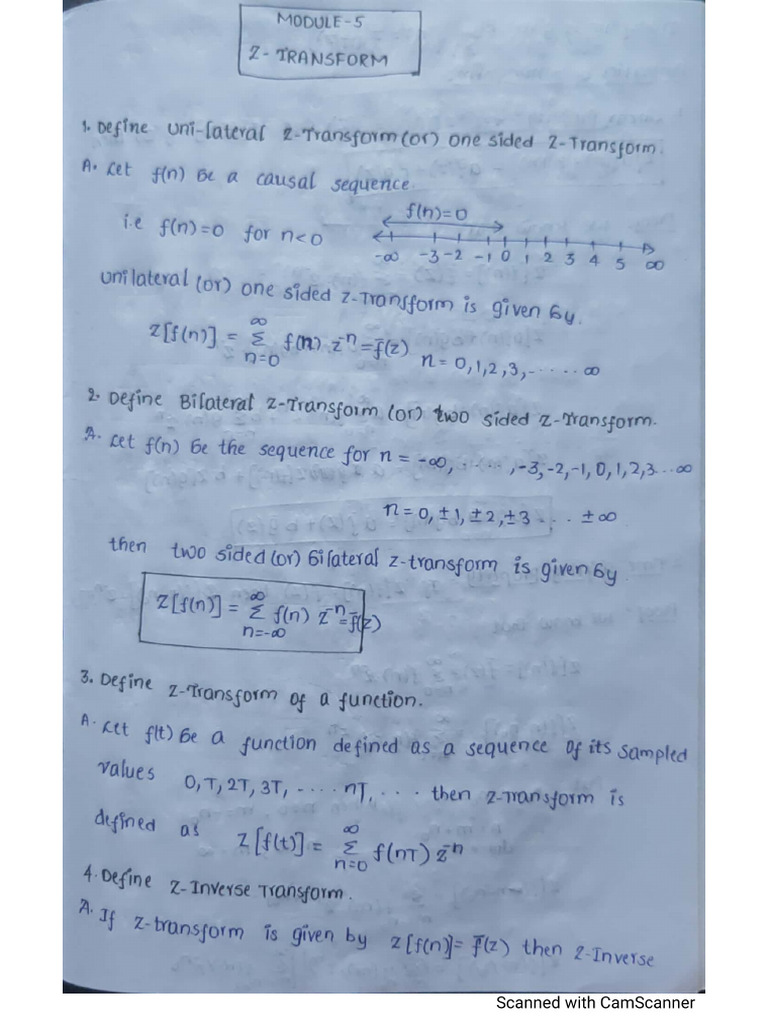 MODULE-5
Z-TRANSFORM
1. Define Uni-lateral Z-Transform (or) one sided Z-Transform.
A. Let f(n) be a causal sequence
i.e f(n)=0 for n<0
f(n)=0
-∞ -3 -2 -1 0 1 2 3 4 5 ∞
unilateral (or) one sided Z-Transform is given by
Z[f(n)] = ∞ Σ n=0 f(n) z⁻ⁿ = f̄(z) n = 0,1,2,3,-.....∞
2. Define Bilateral Z-Transform (or) two sided Z-Transform.
A. Let f(n) be the sequence for n = -∞,.....,-3,-2,-1,0,1,2,3...∞
n = 0, ±1, ±2, ±3 ... ±∞
then two sided (or) Bilateral z-transform is given by
Z[f(n)] = ∞ Σ n=-∞ f(n) z⁻ⁿ = f̄(z)
3. Define Z-Transform of a function.
A. Let f(t) be a function defined as a sequence of its sampled
values 0,T,2T,3T,-....nT,... then Z-Transform is
defined as Z[f(t)] = ∞ Σ n=0 f(nT) z⁻ⁿ
4. Define Z-Inverse Transform.
A. If Z-transform is given by Z[f(n)] = f̄(z) then Z-Inverse
Scanned with CamScanner